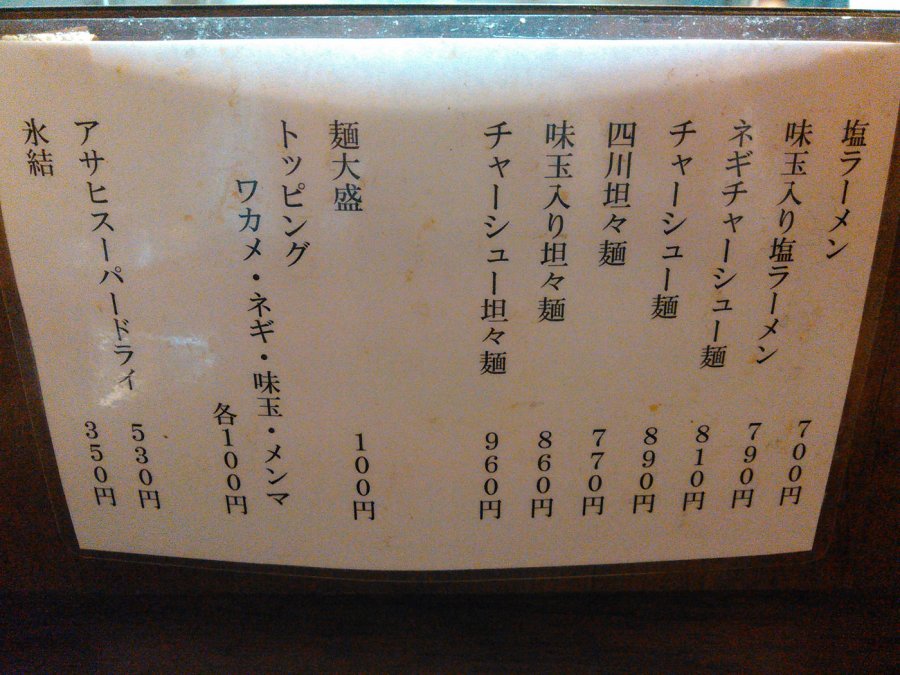 塩ラーメン 700円
味玉入り塩ラーメン 790円
ネギチャーシュー麺 810円
チャーシュー麺 890円
四川坦々麺 770円
味玉入り坦々麺 860円
チャーシュー坦々麺 960円
麺大盛 100円
トッピング
ワカメ・ネギ・味玉・メンマ
各100円
アサヒスーパードライ 530円
氷結 350円